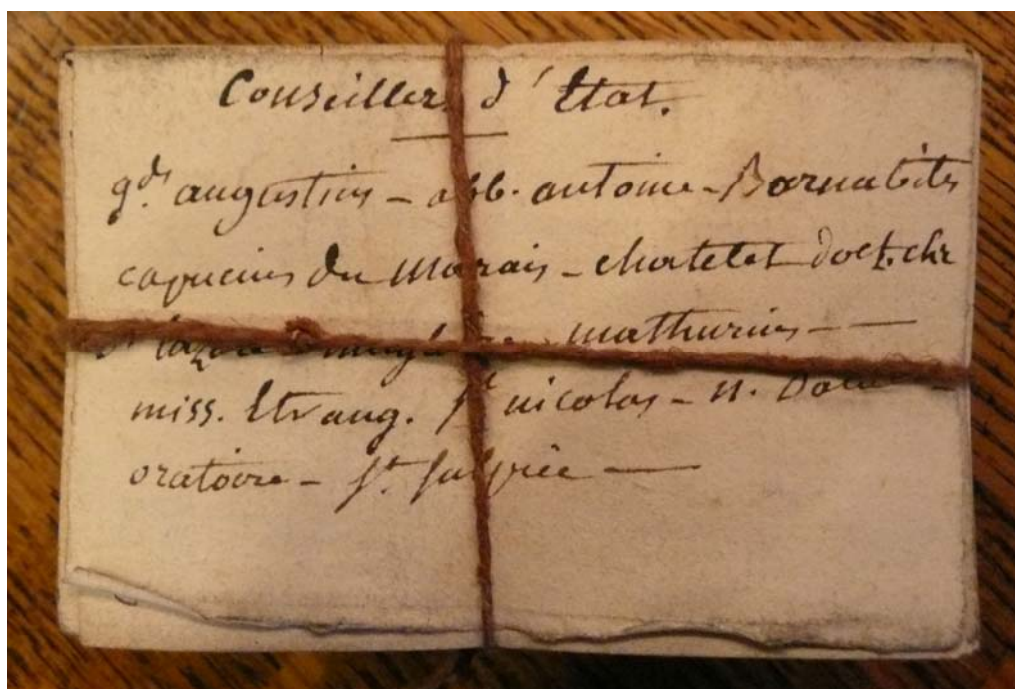 Conseiller d'Etat.
gds augustins - abb. antoine - Barnabites
capucins du Marais - chatelet doct. chr
st mathurins -
miss. Etrang. st nicolas - n. Dame -
oratoire - st. sulpice -